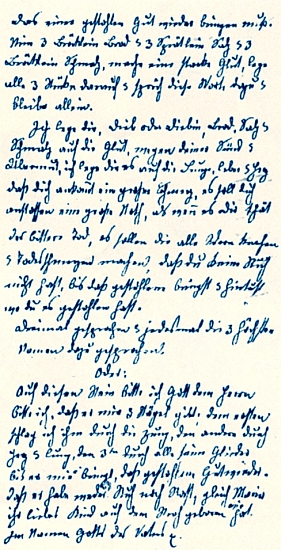 das einer gestohlen Gut wieder bringen muß.
Nim 3 Bröklein Brod & 3 Sprätlein Salz & 3
Bröklein Schmalz, mache eine starke Glut, lege
alle 3 Stüke darauf & sprich diese Wort dazu &
bleibe allein.
Ich lege dir, Dieb oder Diebin, Brod, Salz &
Schmalz auf die Glut, wegen deiner Sünd &
Übermut, ich lege dir es auf die Lung, Leber & Herz
daß dich ankomt ein großer Schmerz, es soll dich
anstoßen eine große Noth, als wenn es dir thät
der bittere Tod, es sollen dir alle Adern krachen
& Todesschmerzen machen, daß du keine Ruh
nicht hast, bis daß gestohlene bringst & hinthust
wo du es gestohlen hast.
dreimal gesprochen & jedesmal die 3 höchsten
Namen dazu gesprochen.
Oder:
bitt ich, daß er mir 3 Nägel gibt, den ersten
schlag ich ihm durch die Zung, den andern durch
Herz & Lung, den 3ten durch alle seine Glieder
bis er mir bringt, daß gestohlene Gut wieder.
daß er habe weder Ruh noch Rast, gleich Maria
ihr liebes Kind auf dem geboren hat.
Im Namen Gotts des Vaters